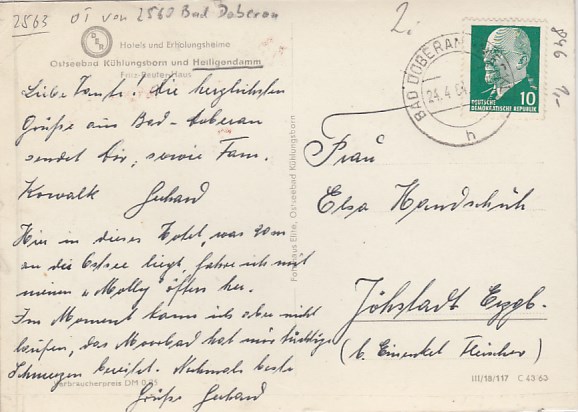 2563 OT von 2560 Bad Doberan
2.
846 1,-
Hotels und Erholungsheime
Ostseebad Kühlungsborn und Heiligendamm
Fritz-Reuter-Haus
Liebe Tante. Die herzlichsten
Grüße aus Bad-Doberan
sendet Dir, sowie Fam.
Kowalk Gerhard
Hier in dieses Hotel, was 20m
an die Ostsee liegt, fahre ich mit
meinen "Molly" öfters her.
Im Moment kann ich aber nicht
laufen, das Moorbad hat mir tüchtige
Schmerzen bereitet. Nochmals beste
Grüße Gerhard
Verbraucherpreis DM 0,25
Fotohaus Eite, Ostseebad Kühlungsborn
BAD DOBERAN
24.4.64
h
DEUTSCHE
DEMOKRATISCHE REPUBLIK 10
Frau
Elsa Handschuh
Jöhstadt Erzgb.
(b. Einenkel Fleischer)
III/18/117 C 43/63